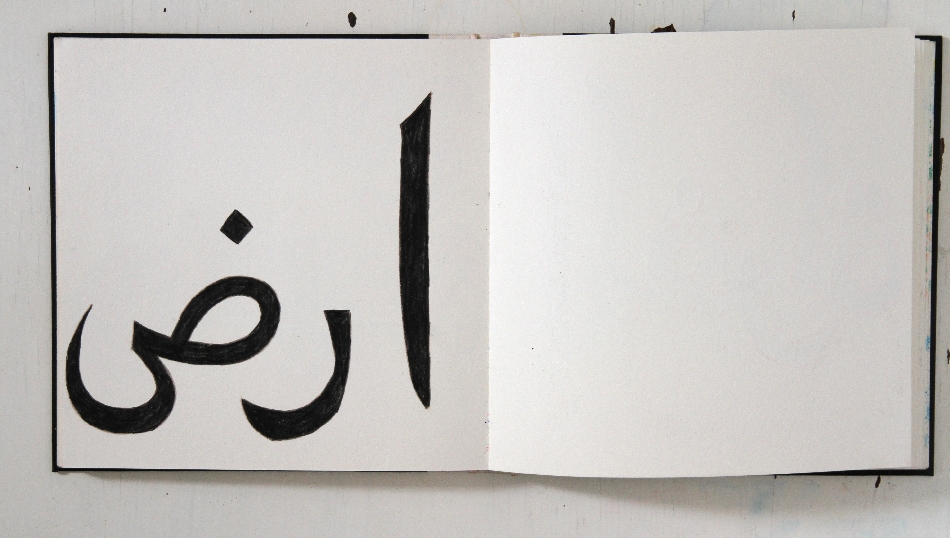 ارض